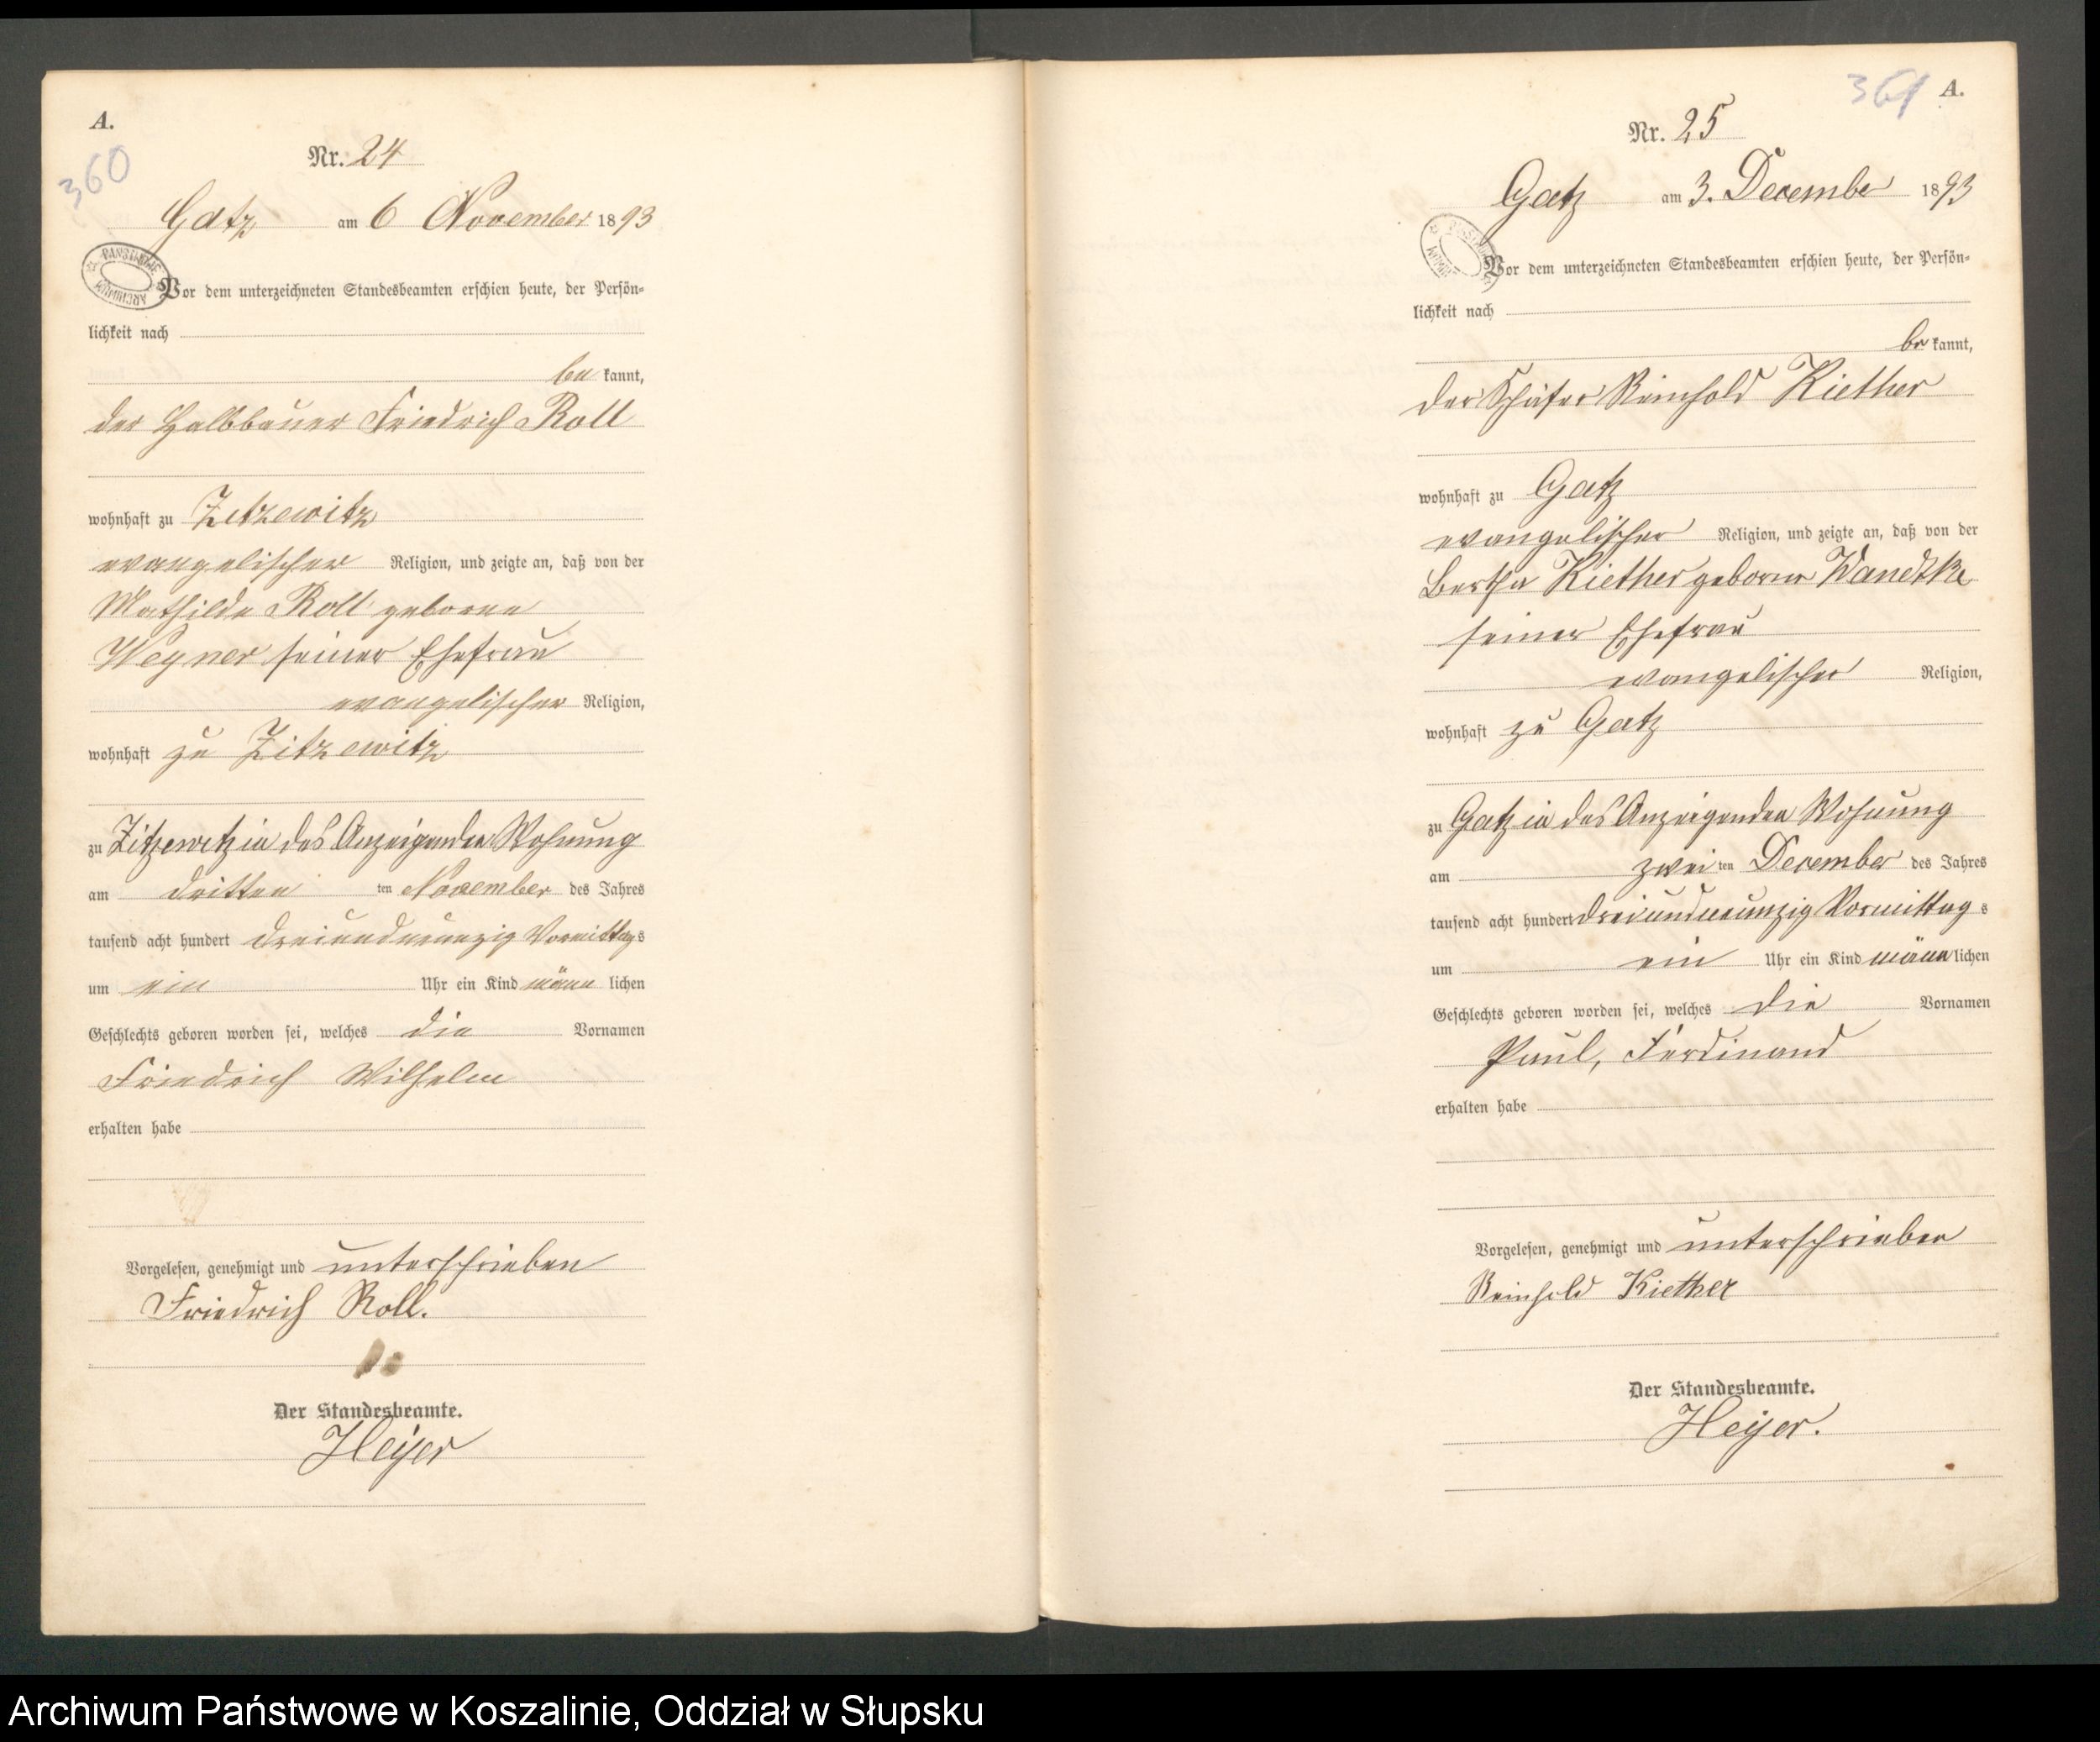 A.
360
Nr. 24
Gatz am 6 November 1893
PAŃSTWOWE ARCHIWUM
Vor dem unterzeichneten Standesbeamten erschien heute, der Persön-
lichkeit nach
be kannt,
der Halbbauer Friedrich Roll
wohnhaft zu Zitzewitz
evangelischer Religion, und zeigte an, daß von der
Mathilde Roll geborne
Wegner seiner Ehefrau
evangelischer Religion,
wohnhaft zu Zitzewitz
zu Zitzewitz in des Anzeigenden Wohnung
am dritten ten November des Jahres
tausend acht hundert dreiundneunzig Vormittags
um ein Uhr ein Kind männ lichen
Geschlechts geboren worden sei, welches die Vornamen
Friedrich Wilhelm
erhalten habe
Vorgelesen, genehmigt und unterschrieben
Friedrich Roll.
Der Standesbeamte.
Heyer
361 A.
Nr. 25
Gatz am 3. December 1893
Vor dem unterzeichneten Standesbeamten erschien heute, der Persön-
lichkeit nach
be kannt,
der Schäfer Reinhold Kiether
wohnhaft zu Gatz
evangelischer Religion, und zeigte an, daß von der
Bertha Kiether geborne Wandtke
seiner Ehefrau
evangelischer Religion,
wohnhaft zu Gatz
zu Gatz in des Anzeigenden Wohnung
am zwei ten December des Jahres
tausend acht hundert dreiundneunzig Vormittag s
um ein Uhr ein Kind männ lichen
Geschlechts geboren worden sei, welches die Vornamen
Paul, Ferdinand
erhalten habe
Vorgelesen, genehmigt und unterschrieben
Reinhold Kiether
Der Standesbeamte.
Heyer.
Archiwum Państwowe w Koszalinie, Oddział w Słupsku